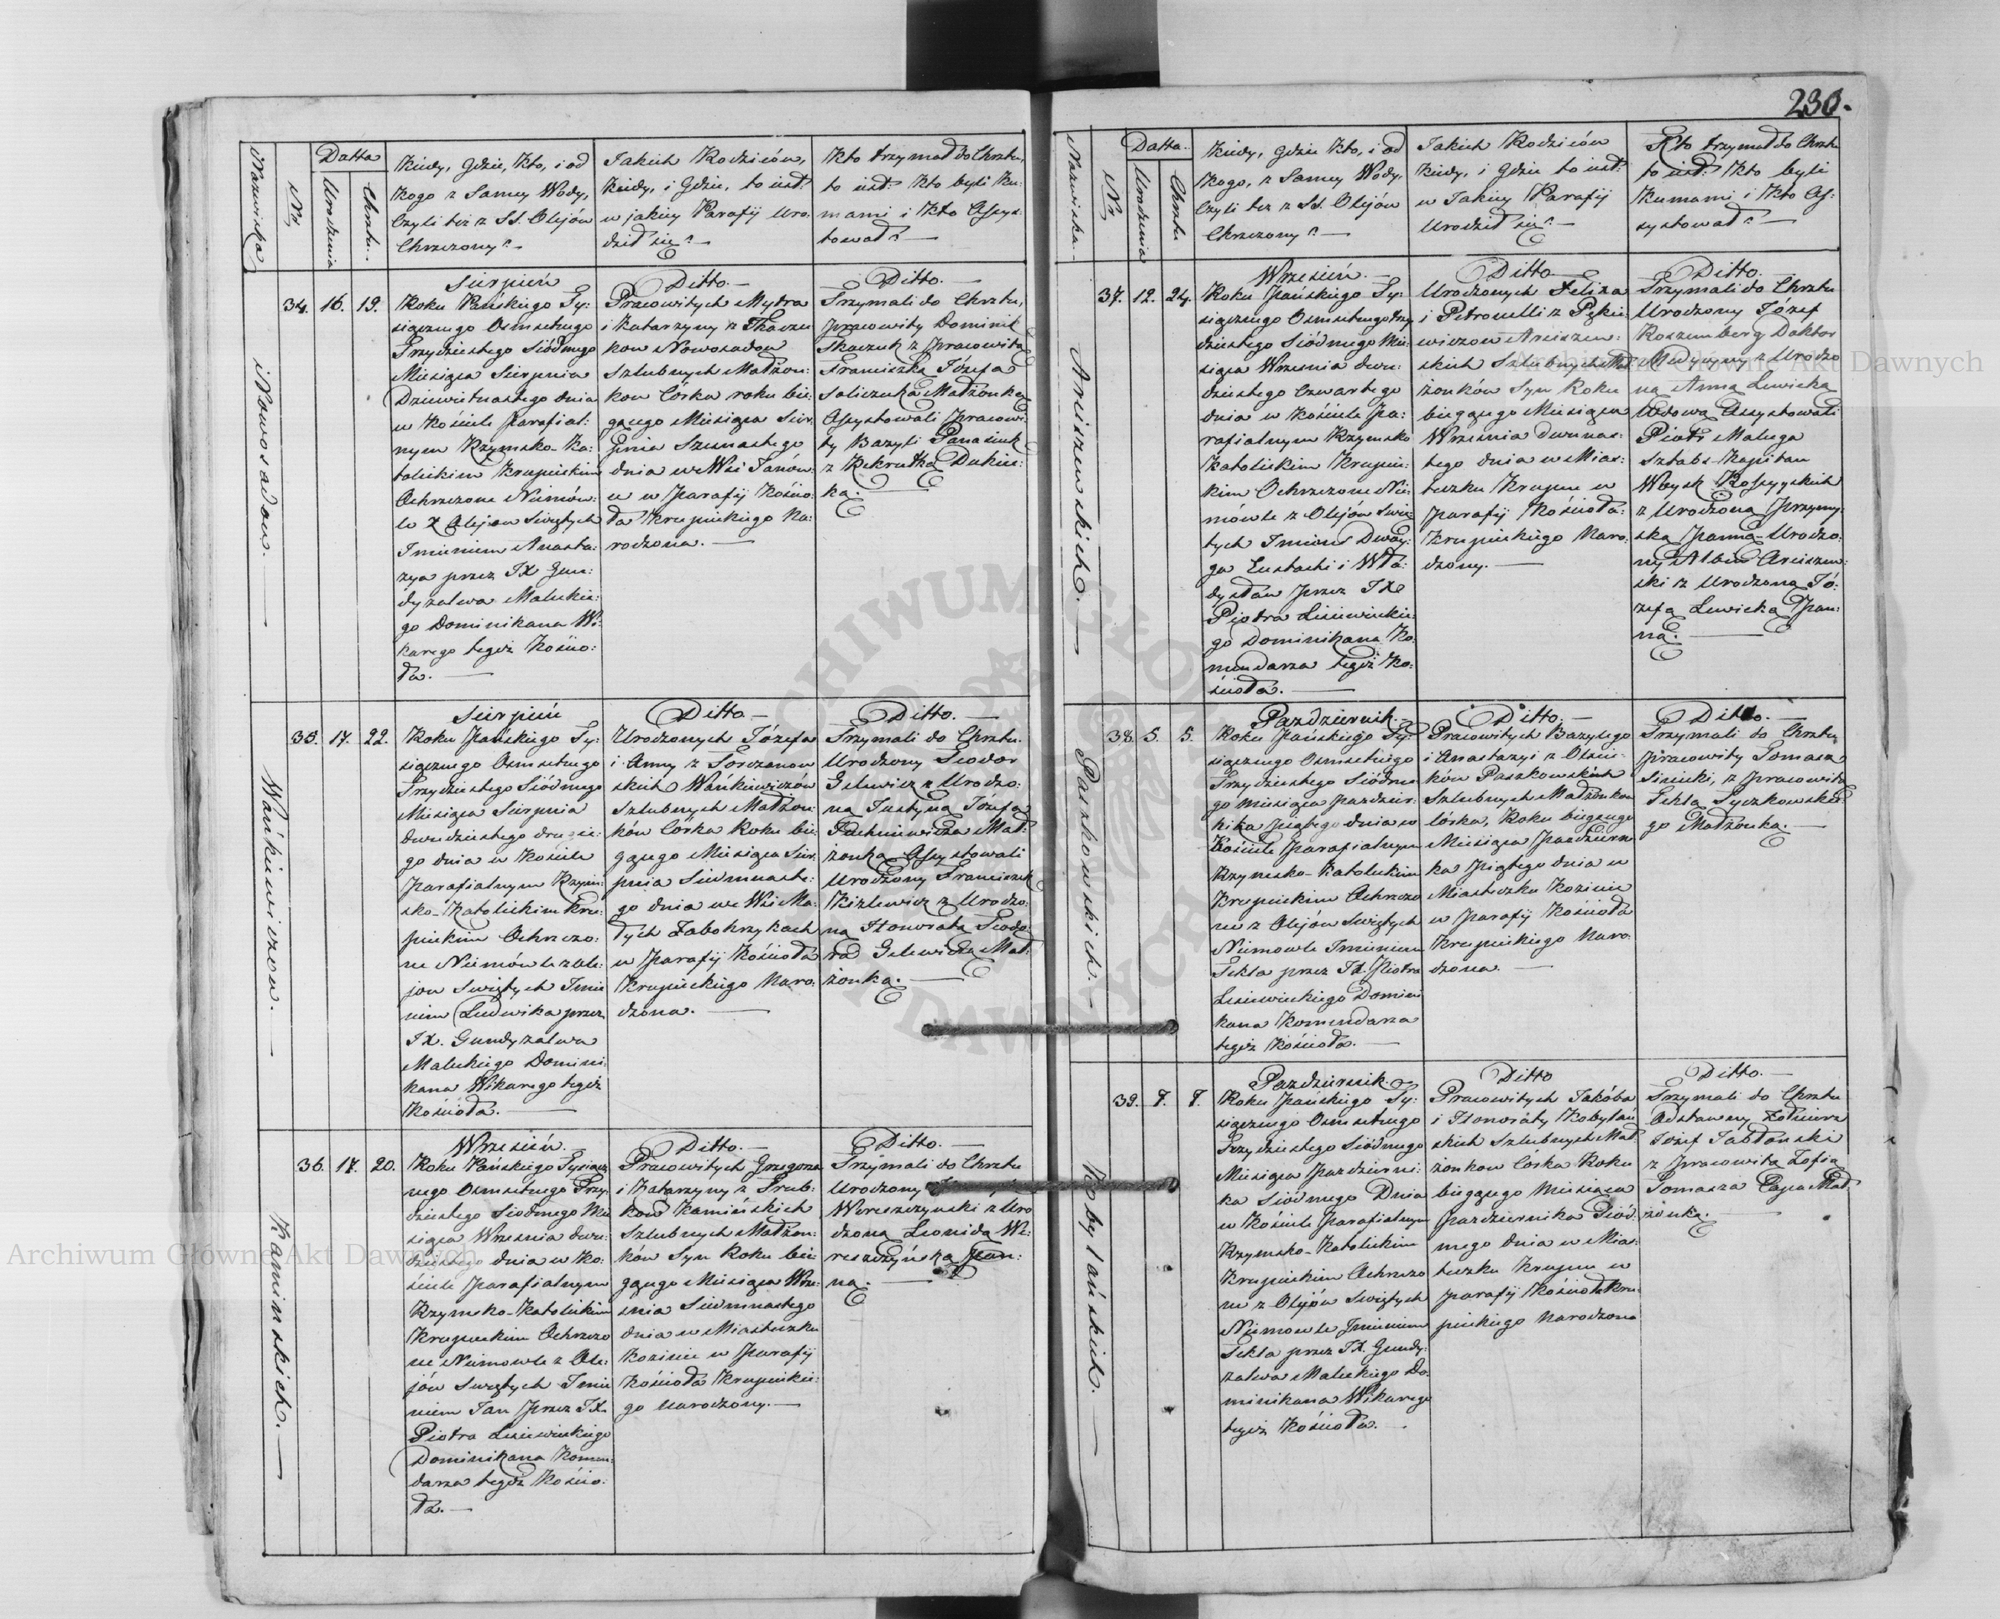 230.
Nazwiska
Nr.
Datta
Urodzenia
Chrztu.
Kiedy, Gdzie, Kto, i od
Kogo z Samey Wody,
Czyli też z SS. Olejów
Chrzczony?
Jakich Rodziców,
Kiedy, i Gdzie, to iest
w jakiey Parafij Uro-
dził się?
Kto trzymał do Chrztu,
to iest: Kto byli Ku-
mami i Kto Assys-
tował?
Nowosadow.
34. 16. 19.
Sierpień
Roku Pańskiego Ty-
siącznego Osmsetnego
Trzydziestego Siódmego
Miesiąca Sierpnia
Dziewiętnastego dnia
w Kościele Parafial-
nym Rzymsko-Ka-
tolickim Krupeickim
Ochrzczone Niemów-
le z Olejow Swiętych
Imieniem Anasta-
zya przez JX Gun-
dyzalwa Maleckie-
go Dominikana Wi-
karego tegoż Kościo-
ła.
Ditto.
Pracowitych Mytra
i Katarzyny z Tkaczu-
kow Nowosadow
Szlubnych Małżon-
kow Córka roku bie-
gącego Miesiąca Sier-
pnia Szesnastego
dnia we Wsi Janów-
ce w Parafij Kościo-
ła Krupeickiego Na-
rodzona.
Ditto.
Trzymali do Chrztu,
pracowity Dominik
Tkaczuk z pracowitą
Franciszką Józefa
Saliczuka Małżonką
Assystowali Pracowi-
ty Bazyli Panasiuk
z Rekrutką Dukie-
ką.
Wańkiewiczow.
35. 17. 22.
Sierpień
Roku Pańskiego Ty-
siącznego Osmsetnego
Trzydziestego Siódmego
Miesiąca Sierpnia
dwudziestego drugie-
go dnia w Kościele
Parafialnym Rzym-
sko-Katolickim Kru-
peickim Ochrzczo-
ne Niemówle z Ole-
jow Swiętych Imie-
niem Ludwika przez
JX. Gundyzalwa
Maleckiego Domini-
kana Wikarego tegoż
Kościoła.
Ditto
Urodzonych Józefa
i Anny z Torczanow-
skich Wańkiewiczów
Szlubnych Małżon-
ków Córka Roku bie-
gącego Miesiąca Sier-
pnia Siedmnaste-
go dnia we Wsi Ma-
łych Zabokrzykach
w Parafij Kościoła
Krupeickiego Naro-
dzona.
Ditto.
Trzymali do Chrztu
Urodzony Teodor
Gelewicz z Urodzo-
ną Justyną Józefa
Małżonką Assystowali
Urodzony Franciszek
Kizlewicz z Urodzo-
ną Honoratą Teodo-
ra Gelewicza Mał-
żonką.
Kaminskich.
36. 17. 20.
Wrzesień.
Roku Pańskiego Tysiącz-
nego Osmsetnego Trzy-
dziestego Siodmego Mie-
siąca Wrzesnia dwu-
dziestego dnia w Ko-
ściele Parafialnym
Rzymsko-Katolickim
Krupeickim Ochrzczo-
ne Niemowle z Ole-
jów Swiętych Imie-
niem Jan przez JX
Piotra Lisiewickiego
Dominikana Komen-
darza tegoż Kościo-
ła.
Ditto.
Pracowitych Grzegorza
i Katarzyny z Trub-
kow Kamińskich
Szlubnych Małżon-
ków Syn Roku bie-
gącego Miesiąca Wrze-
snia Siedmnastego
dnia w Miasteczku
Kozinie w Parafij
Kościoła Krupeickie-
go narodzony.
Ditto.
Trzymali do Chrztu
Urodzony
Wereszczynski z Uro-
dzoną Leonidą We-
reszczyńską Pan-
ną.
Nazwiska.
Nr.
Datta.
Urodzenia
Chrztu
Kiedy, Gdzie Kto, i od
Kogo, z Samey Wody,
Czyli też z SS. Olejów
Chrzczony?
Jakich Rodziców
Kiedy, i Gdzie to iest
w Jakiey Parafij
urodził się?
Kto trzymał do Chrztu
to iest: Kto byli
Kumami i Kto As-
systował?
Arciszewskich.
37. 12. 24.
Wrzesień.
Roku Pańskiego Ty-
siącznego Osmsetnego trzy-
dziestego Siódmego Mie-
siąca Wrzesnia dwu-
dziestego Czwartego
dnia w Kościele Pa-
rafialnym Rzymsko
Katolickim Krupeic-
kim Ochrzczone Nie-
mówle z Olejów Swię-
tych Imieni Dwoy-
ga Eustachi i Wła-
dysław przez JX
Piotra Lisiewickie-
go Dominikana Ko-
mendarza tegoż Ko-
ścioła.
Ditto
Urodzonych Felixa
i Petronelli z Pękie-
wiczow Arciszew-
skich Szlubnych Mał-
żonków Syn Roku
biegącego Miesiąca
Wrzesnia dwunas-
tego dnia w Mias-
teczku Krupcu w
Parafij Kościoła
Krupeickiego Naro-
dzony.
Ditto.
Trzymali do Chrztu
Urodzony Józef
Roszemberg Doktor
Medycyny z Urodzo-
ną Anną Lewicką
Wdową Assystowali
Piotr Maluga
Sztabs-Kapitan
Woysk Rossyyskich
z Urodzoną Przemy-
ską Panną-Urodzo-
ny Albin Arciszew-
ski z Urodzoną Jó-
zefą Lewicką Pan-
ną.
Paszkowskich.
38. 5. 5.
Pazdziernik.
Roku Pańskiego Ty-
siącznego Osmsetnego
Trzydziestego Siódme-
go Miesiąca Pazdzier-
nika piątego dnia w
Kościele Parafialnym
Rzymsko-Katolickim
Krupeickim Ochrzczo-
ne z Olejów Swiętych
Niemowle Imieniem
Tekla przez JX. Piotra
Lisiewickiego Domini-
kana Komendarza
tegoż Kościoła.
Ditto.
Pracowitych Bazylego
i Anastazyi z Olsie-
ków Paszkowskich
Szlubnych Małżonkow
Córka, Roku biegącego
Miesiąca Pazdzierni-
ka Piątego dnia w
Miasteczku Kozinie
w Parafij Kościoła
Krupeickiego Naro-
dzona.
Ditto.
Trzymali do Chrztu
Pracowity Tomasz
z Pracowitą
Teklą Tyczkowskie-
go Małżonką.
Kobylańskich.
39. 7. 7.
Pazdziernik.
Roku Pańskiego Ty-
siącznego Osmsetnego
Trzydziestego Siódmego
Miesiąca Pazdzierni-
ka Siódmego Dnia
w Kościele Parafialnym
Rzymsko-Katolickim
Krupeickim Ochrzczo-
ne z Olejów Swiętych
Niemowle Imieniem
Tekla przez JX. Gundy-
zalwa Maleckiego Do-
minikana Wikarego
tegoż Kościoła.
Ditto
Pracowitych Jakóba
i Honoraty Kobylań-
skich Szlubnych Mał-
żonkow Córka Roku
biegącego Miesiąca
Pazdziernika Siód-
mego dnia w Mias-
teczku Krupcu w
Parafij Kościoła Kru-
peickiego Narodzona
Ditto.
Trzymali do Chrztu
Odstawny Żołnierz
Józef Jabłonski
z Pracowitą Zofią
Tomasza Małżonką.
Archiwum Główne Akt Dawnych
Archiwum Główne Akt Dawnych
ARCHIWUM GŁÓWNE AKT DAWNYCH